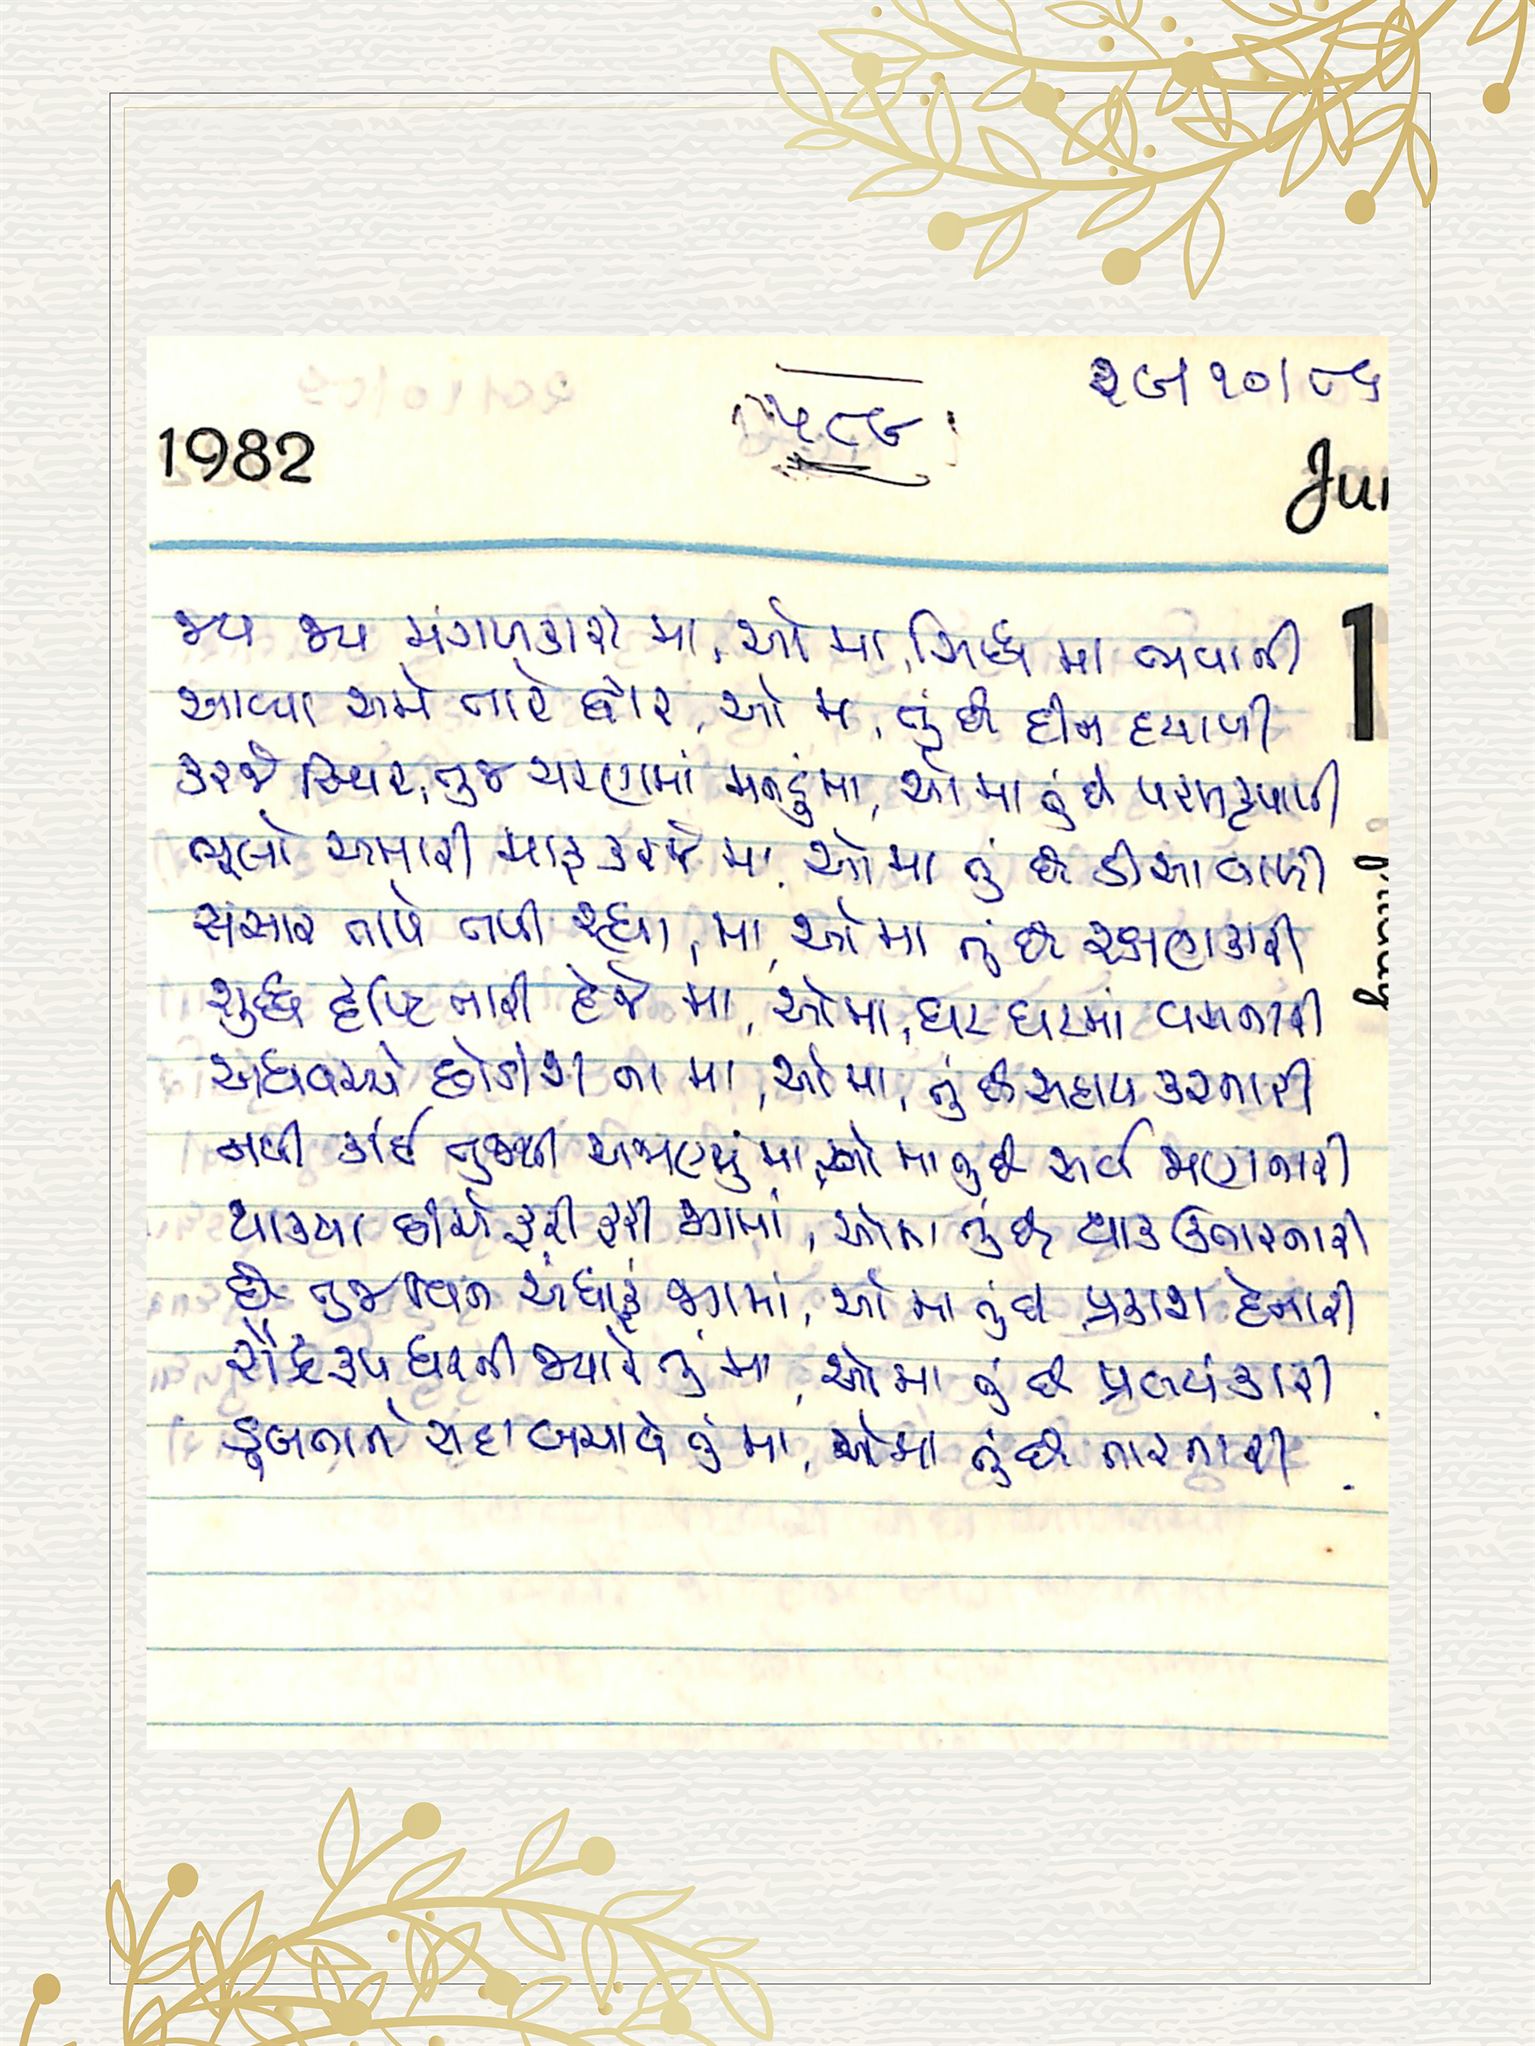 ૨૯/૧૦/૮૬
૫૮૯
1982
જય જય મંગળકારી મા, ઓ મા, સિધ્ધ મા ભવાની
આવ્યા અમે તારે દ્વાર, ઓ મા, તું છે દીન દયાળી
કરજે સ્થિર, તુજ ચરણમાં મનડું મા, ઓ મા તું છે પરમકૃપાળી
ભૂલો અમારી માફ કરજે મા, ઓ મા તું છે ડીસાવાળી
સંસાર તાપે તપી રહ્યા, મા, ઓ મા તું છે રક્ષણકારી
શુધ્ધ દૃષ્ટિ તારી દેજે મા, ઓ મા, ઘટ ઘટમાં વસનારી
અધવચ્ચે છોડીશ ના મા, ઓ મા, તું છે સહાય કરનારી
નથી કાંઈ તુજથી અજાણ્યું મા, ઓ મા તું છે સર્વ જાણનારી
થાક્યા છીએ ફરી ફરી જગમાં, ઓ મા તું છે થાક ઉતારનારી
છે તુજ વિન અંધારું જગમાં, ઓ મા તું છે પ્રકાશ દેનારી
રૌદ્ર રૂપ ધરતી જ્યારે તું મા, ઓ મા તું છે પ્રલયંકારી
ડૂબતાને સદા બચાવે તું મા, ઓ મા તું છે તારનારી